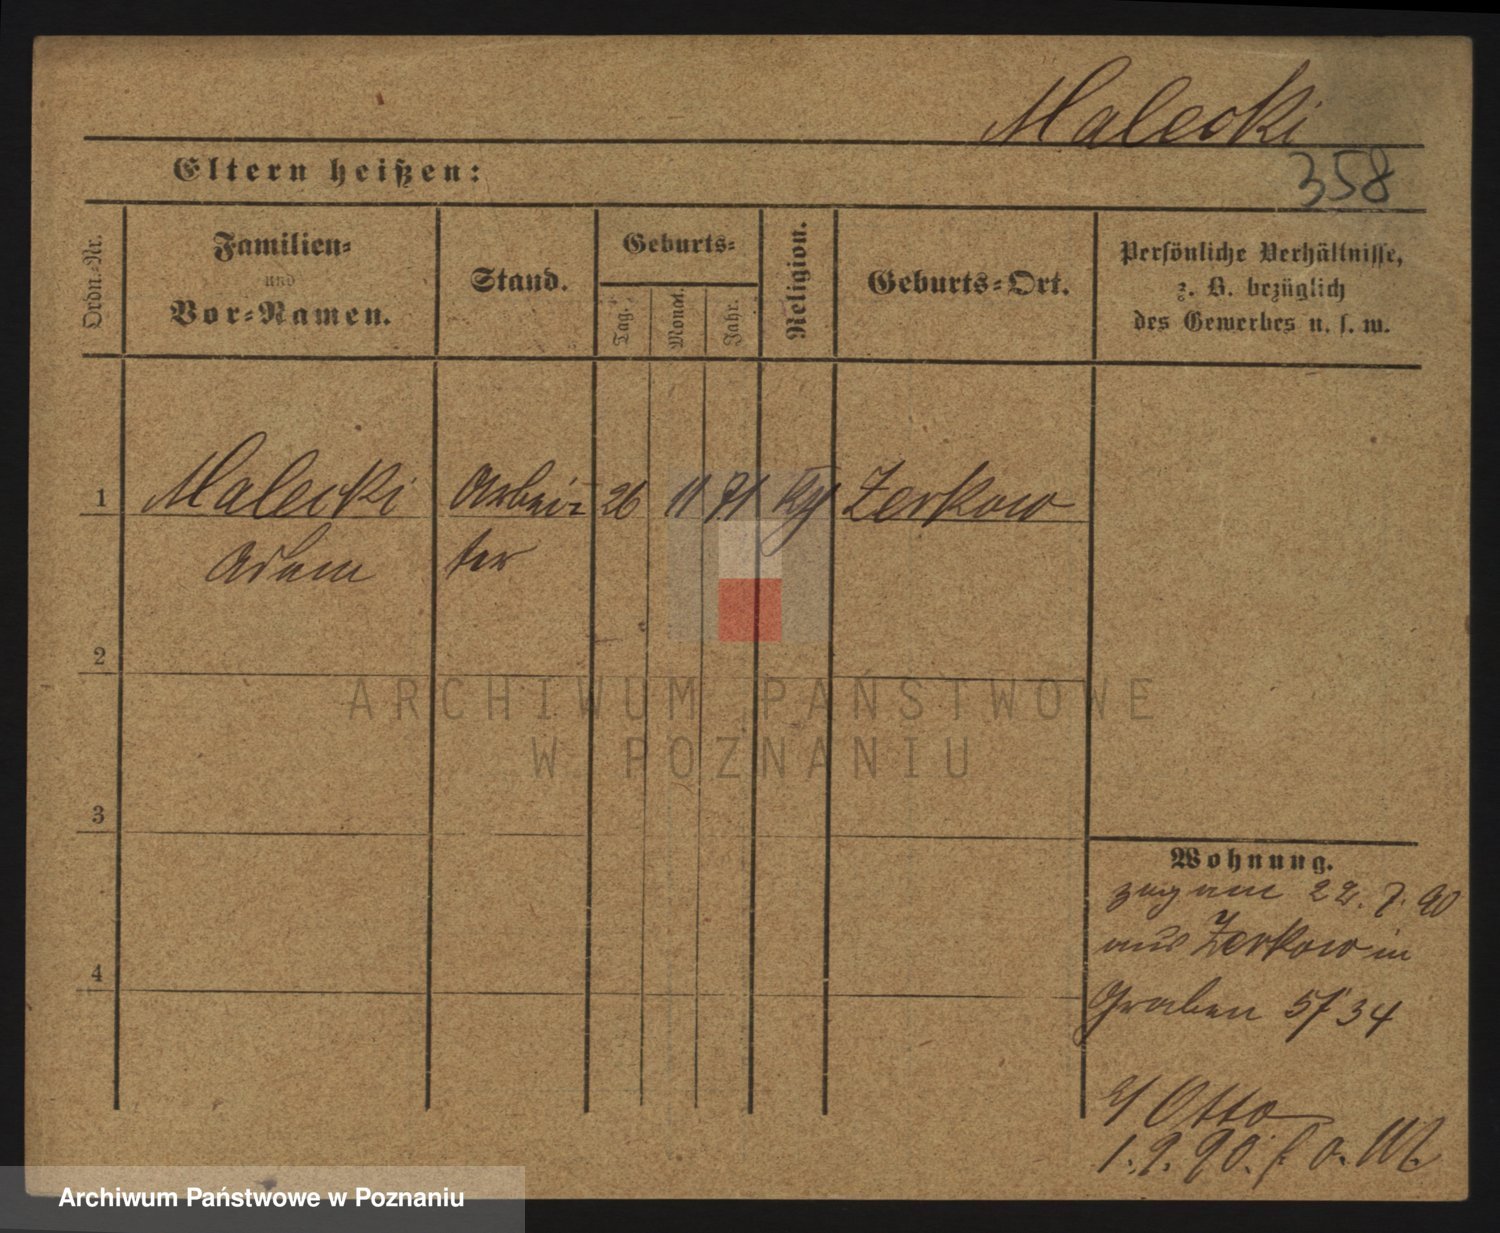 Malecki
Eltern heißen:
358
Ordn.-Nr.
Familien-
und
Vor-Namen.
Stand.
Geburts-
Tag.
Monat.
Jahr.
Religion.
Geburts-Ort.
Persönliche Verhältnisse,
z. B. bezüglich
des Gewerbes u. s. w.
1
Malecki Arbei- 26 11 71 Zerkow
Adam ter
2
ARCHIWUM PAŃSTWOWE
W POZNANIU
3
Wohnung.
zug am 22. 7. 90
aus Zerkow in
4
Graben 5/34
Otto
1. 9. 90.
Archiwum Państwowe w Poznaniu